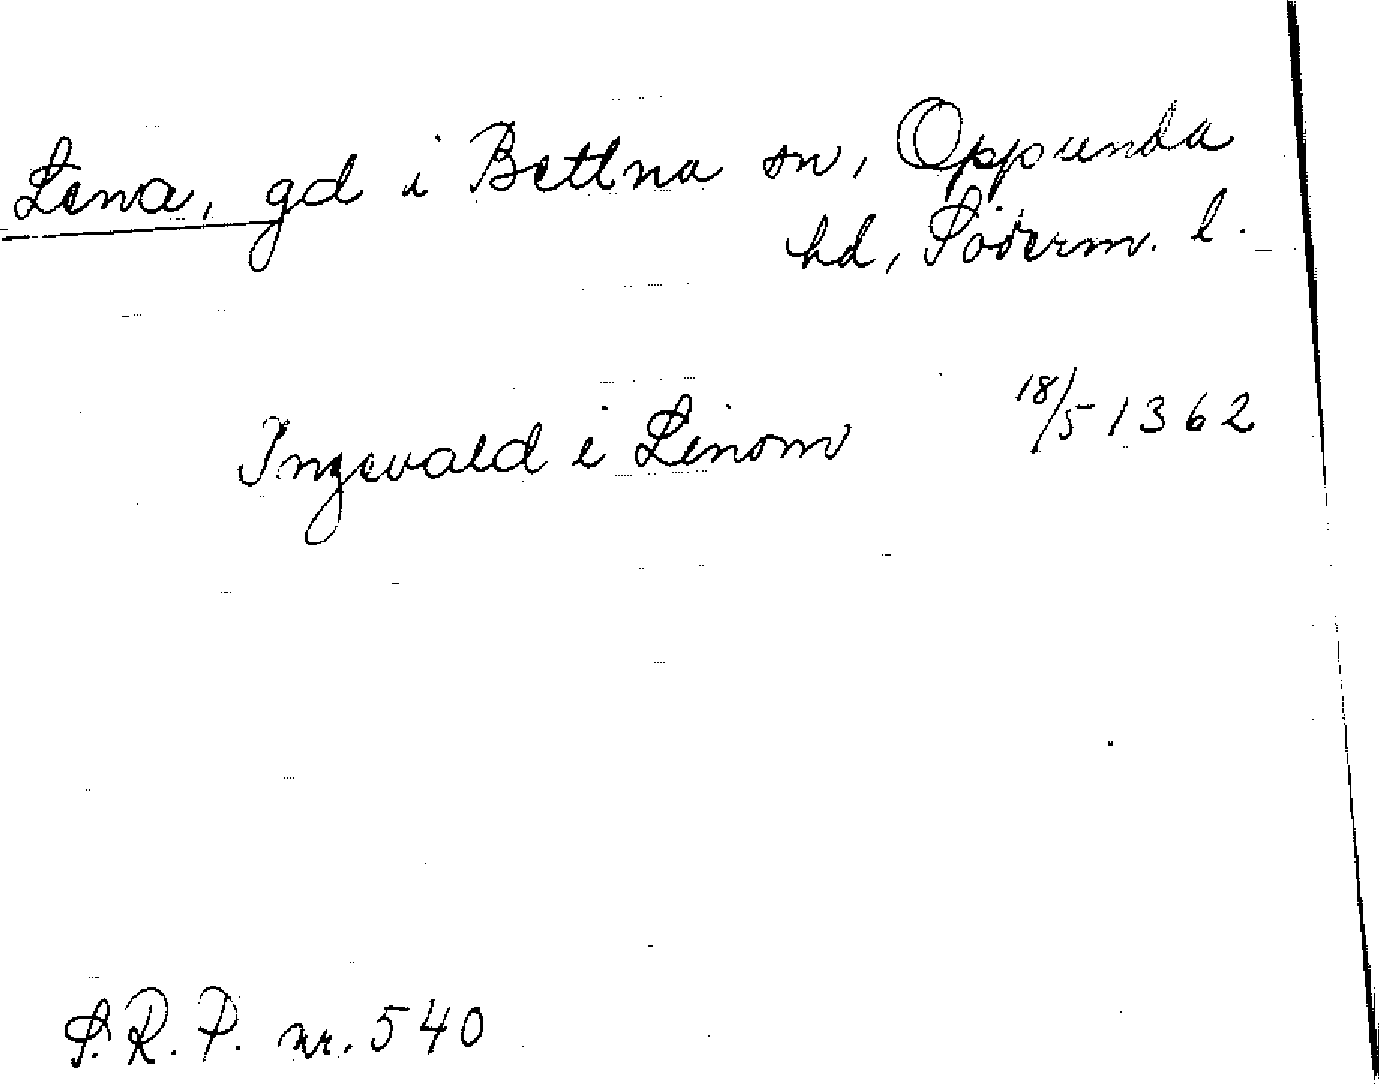 Lena, gd i Bettna sn, Oppunda
hd, Söderm. l.
Ingevald i Linom 18/5 1362
S.R.P. nr. 540